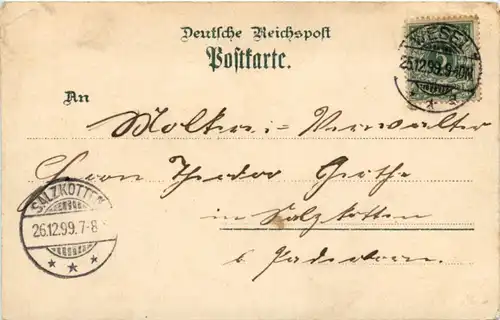 Deutsche Reichspost
Postkarte.
WESEL
25.12.99.9-10N.
An
Molkerei-Verwalter
Herrn Theodor
in Salzkotten
b. Paderborn.
SALZKOTTEN
26.12.99.7-8